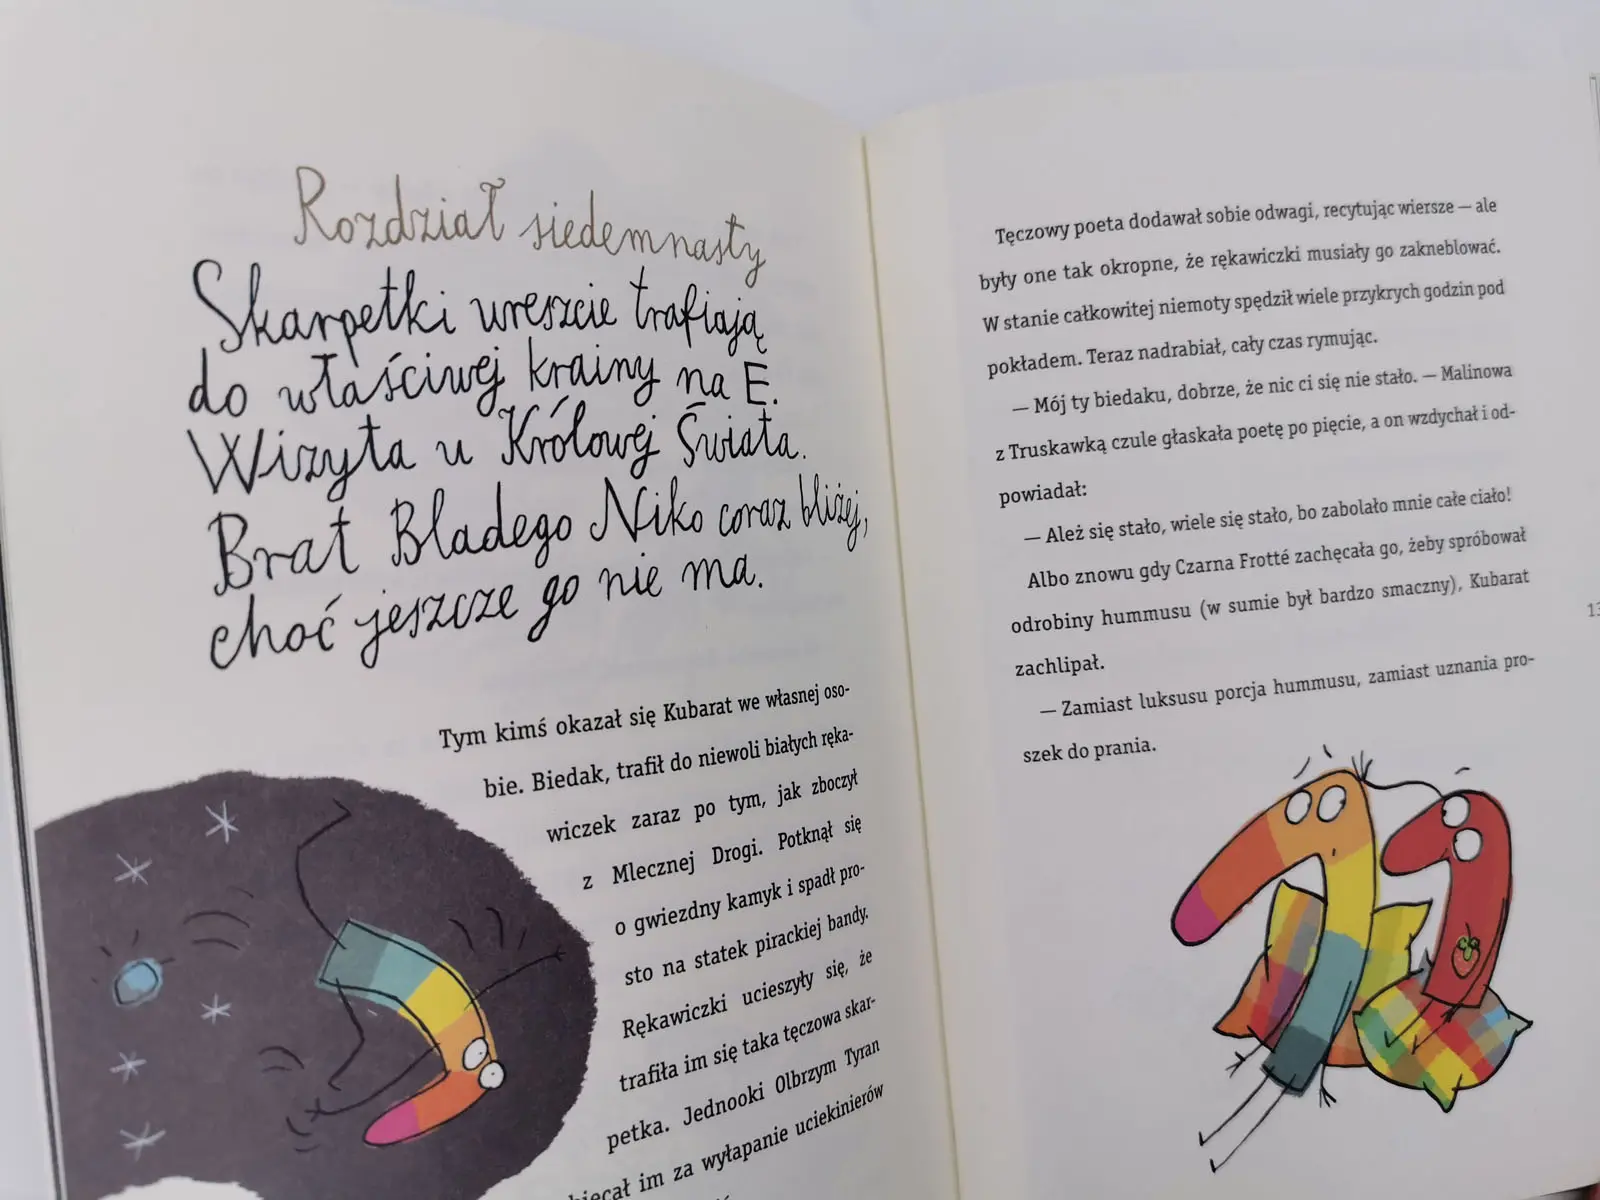 Rozdział siedemnasty
Skarpetki wreszcie trafiają
do właściwej krainy na E.
Wizyta u Królowej Świata.
Brat Bladego Niko coraz bliżej,
choć jeszcze go nie ma.
Tym kimś okazał się Kubarat we własnej oso-
bie. Biedak, trafił do niewoli białych ręka-
wiczek zaraz po tym, jak zboczył
z Mlecznej Drogi. Potknął się
o gwiezdny kamyk i spadł pro-
sto na statek pirackiej bandy.
Rękawiczki ucieszyły się, że
trafiła im się taka tęczowa skar-
petka. Jednooki Olbrzym Tyran
im za wyłapanie uciekinierów
Tęczowy poeta dodawał sobie odwagi, recytując wiersze — ale
były one tak okropne, że rękawiczki musiały go zakneblować.
W stanie całkowitej niemoty spędził wiele przykrych godzin pod
pokładem. Teraz nadrabiał, cały czas rymując.
— Mój ty biedaku, dobrze, że nic ci się nie stało. — Malinowa
z Truskawką czule głaskała poetę po pięcie, a on wzdychał i od-
powiadał:
— Ależ się stało, wiele się stało, bo zabolało mnie całe ciało!
Albo znowu gdy Czarna Frotté zachęcała go, żeby spróbował
odrobiny hummusu (w sumie był bardzo smaczny), Kubarat
zachlipał.
— Zamiast luksusu porcja hummusu, zamiast uznania pro-
szek do prania.